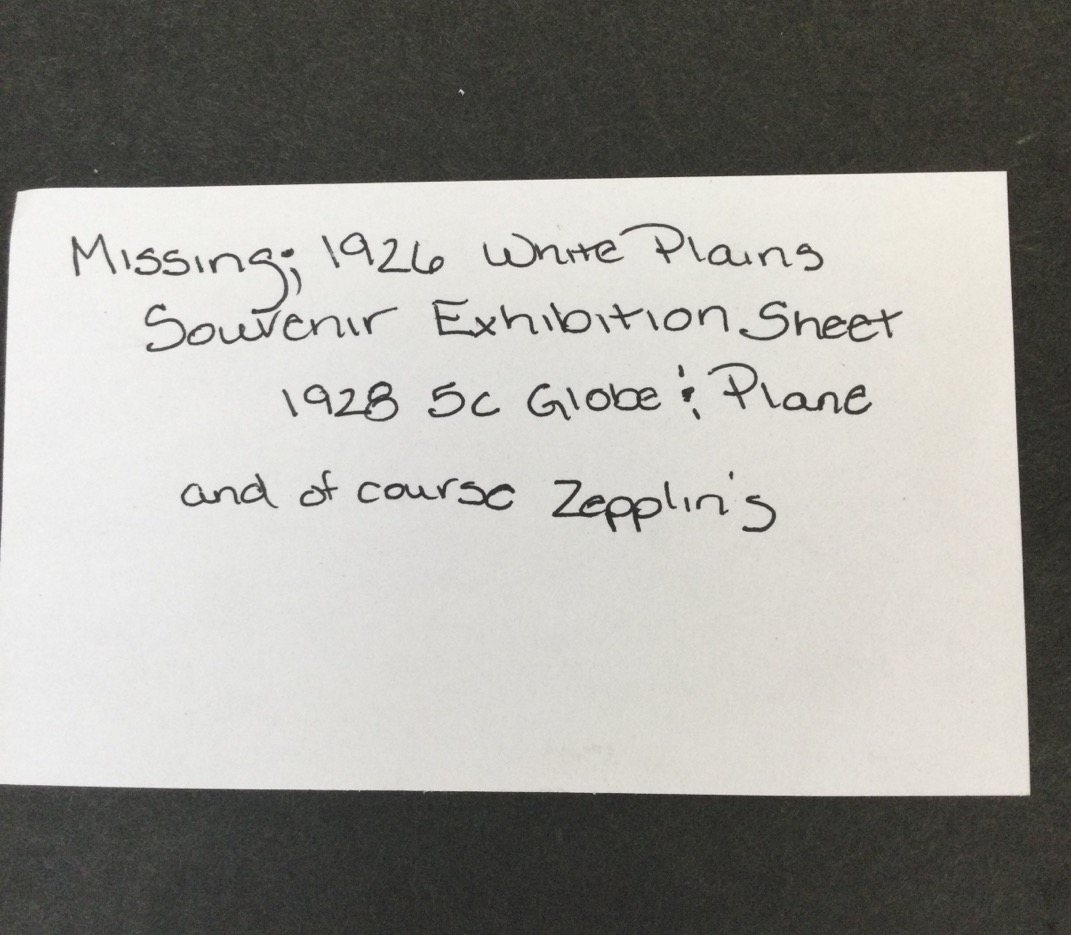 Missing; 1926 White Plains
Souvenir Exhibition Sheet
1928 5c Globe & Plane
and of course Zepplin's